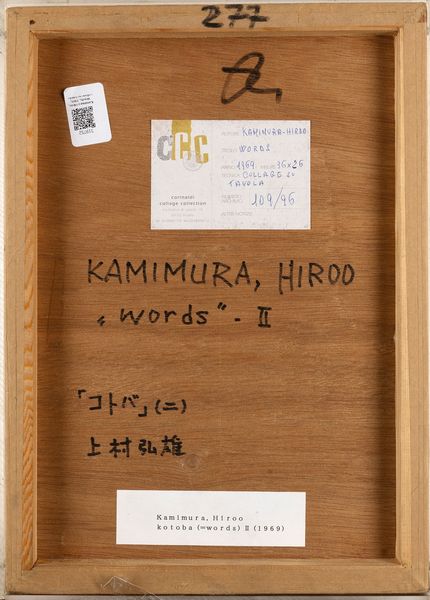 277
ccc
cortnaldi
collage collection
AUTORE KAMIMURA-HIROO
TITOLO WORDS
ANNO 1969 MISURE 36x26
TECNICA COLLAGE SU
TAVOLA
NUMERO
ARCHIVIO 109/96
ALTRE NOTIZIE
KAMIMURA, HIROO
"words" - II
「コトバ」(二)
上村弘雄
Kamimura, Hiroo
kotoba (=words) II (1969)